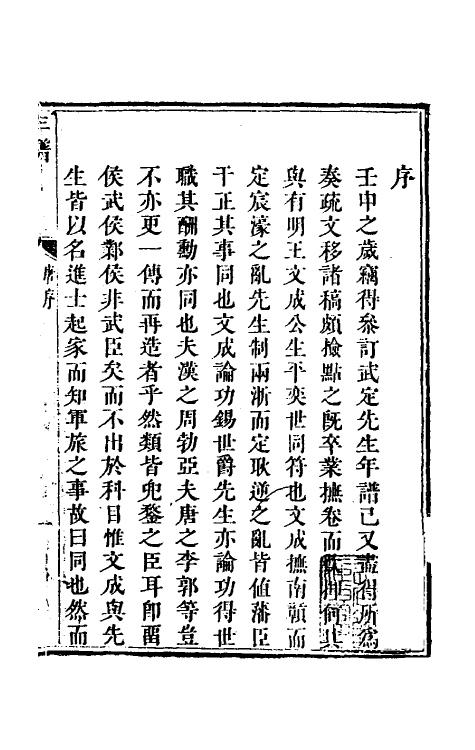 序
壬申之歲竊得參訂武定先生年譜已又盡得所爲
奏疏文移諸稿頗撿點之旣卒業撫卷而歎曰何其
與有明王文成公生平奕世同符也文成撫南贛而
定宸濠之亂先生制兩浙而定耿逆之亂皆値藩臣
干正其事同也文成論功錫世爵先生亦論功得世
職其酬勳亦同也夫漢之周勃亞夫唐之李郭等豈
不亦更一傳而再造者乎然類皆兜鍪之臣耳卽畱
侯武侯鄴侯非武臣矣而不出於科目惟文成與先
生皆以名進士起家而知軍旅之事故曰同也然而
年譜
序